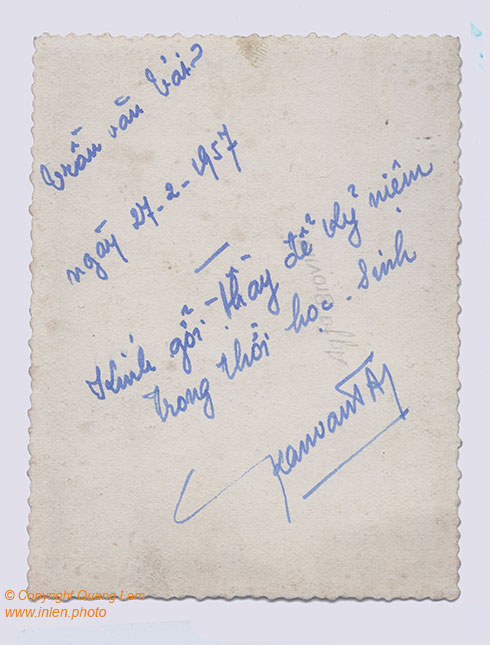 Trần văn Tài
ngày 27-2-1957
Kính gởi thầy để kỷ niệm
trong thời học-sinh
© Copyright Quang Lam
www.inlen.photo